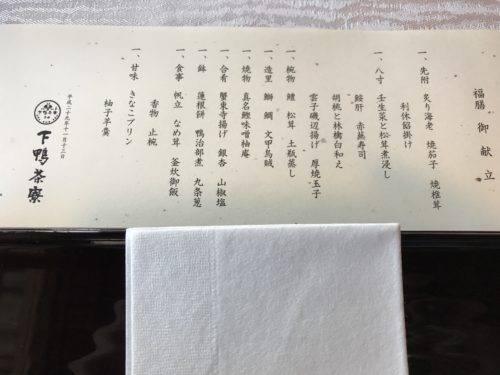 福膳 御献立
一、先附 炙り海老 焼茄子 焼椎茸
利休餡掛け
一、八寸 壬生菜と松茸煮浸し
鮟肝 赤蕪寿司
胡桃と林檎白和え
雲子磯辺揚げ 厚焼玉子
一、椀物 鱧 松茸 土瓶蒸し
一、造里 鰤 鯛 文甲烏賊
一、焼物 真名鰹味噌柚庵
一、合肴 蟹東寺揚げ 銀杏 山椒塩
一、鉢 蓮根餅 鴨治部煮 九条葱
一、食事 帆立 なめ茸 釜炊御飯
香物 止椀
一、甘味 きなこプリン
柚子羊羹
平成二十九年十一月十三日
下鴨茶寮